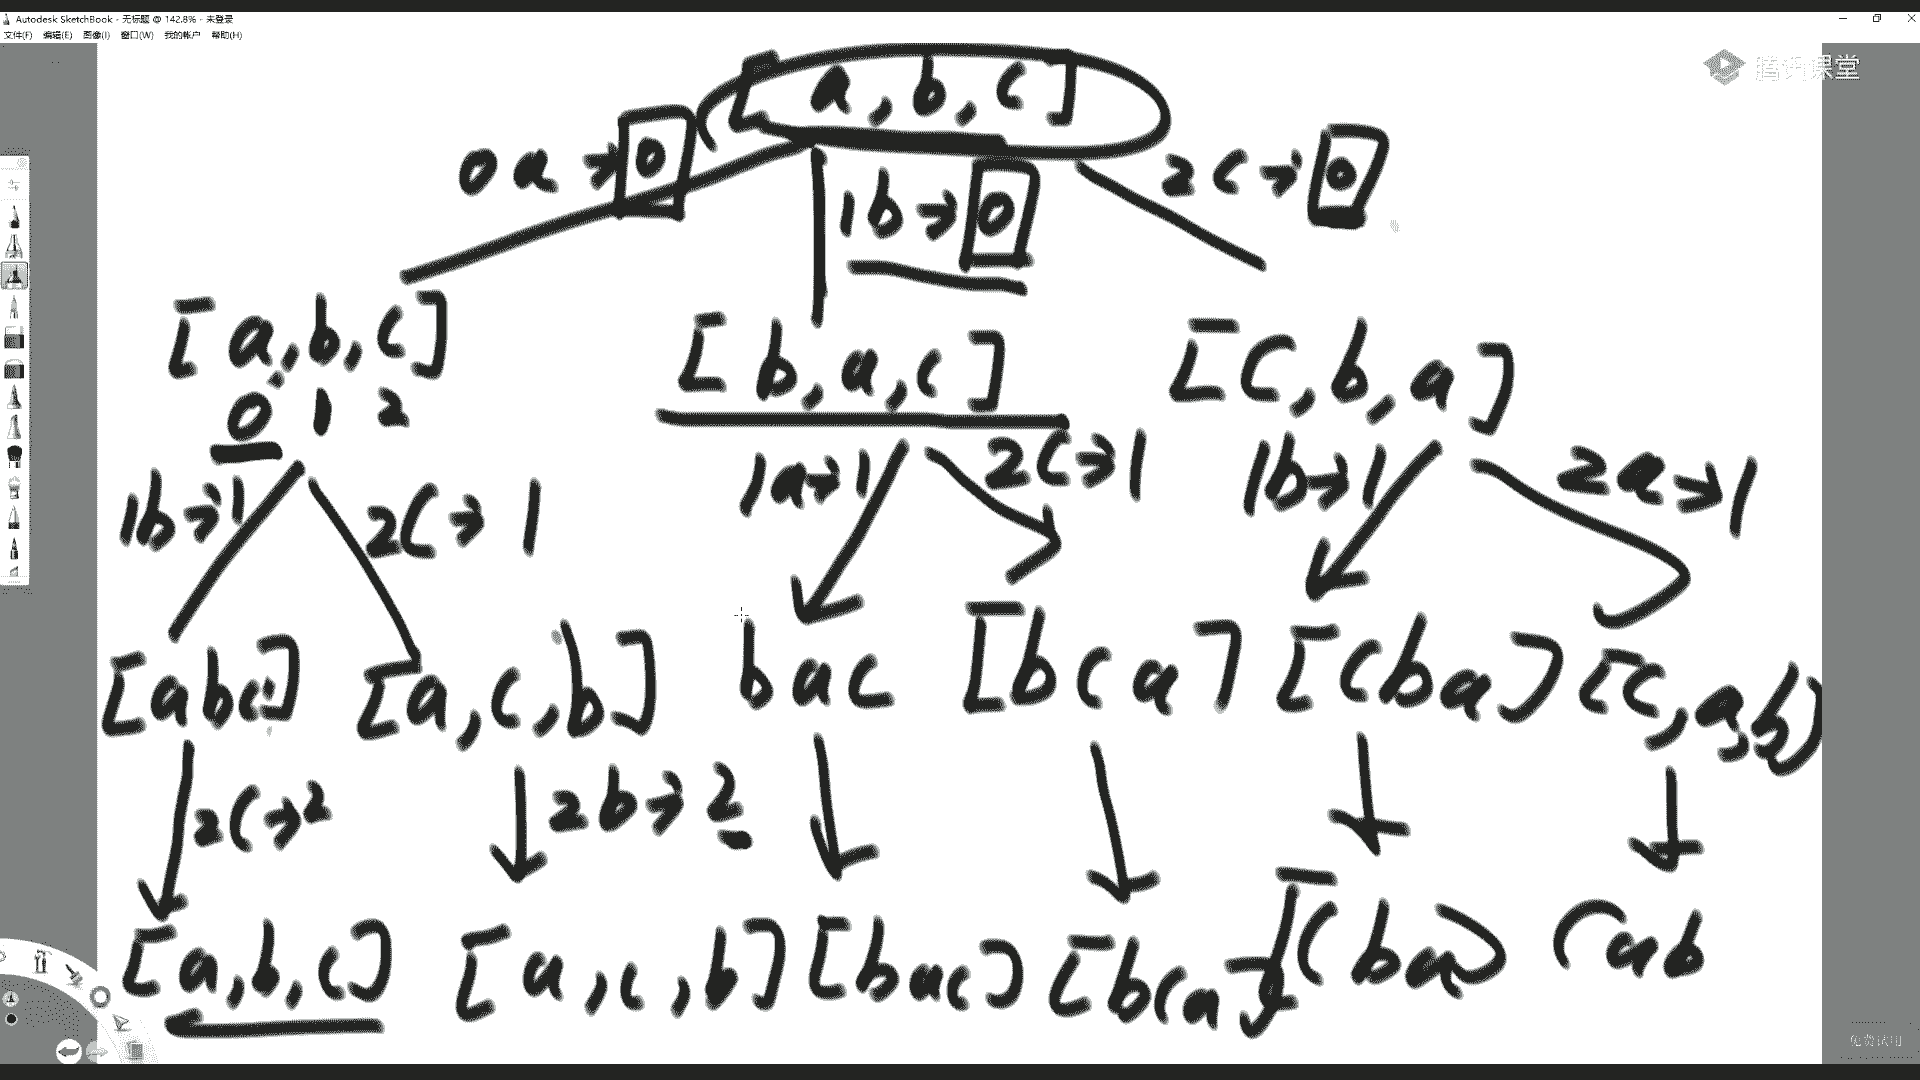 Autodesk SketchBook - 无标题 @ 142.8% - 未登录
文件(F) 编辑(E) 图像(I) 窗口(W) 我的帐户 帮助(H)
腾讯课堂
[a,b,c]
0a→0
1b→0
2c→0
[a,b,c]
[b,a,c]
[c,b,a]
0 1 2
1b→1
2c→1
1a→1
2c→1
1b→1
2a→1
[abc]
[a,c,b]
bac
[bca]
[cba]
[c,a,b)
2c→2
2b→2
[a,b,c]
[a,c,b]
[bac]
[bca]
[cba)
cab
免费试用